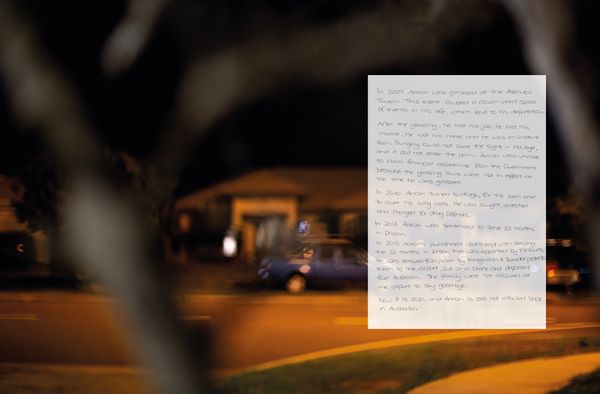 In 2009 Aaron was glassed at the Avenues
Tavern. This event caused a down ward spiral
of events in his life, which lead to his deportation.
After the glassing, he lost his job, he lost his
income, he lost his home and he was in constant
pain. Surgery could not save the sight in his eye,
and it did not ease the pain. Aaron was unable
to claim financial assistance from the Government
because the glassing laws were not in effect at
the time he was glassed.
In 2010 Aaron turned to drugs, for the pain and
to cover his living costs. He was caught, arrested
and charged for drug offences.
In 2013 Aaron was sentenced to serve 32 months
in prison.
In 2015 Aaron's punishment didn't end with serving
the 32 months in prison that was appointed by the courts.
He was removed from prison by Immigration & Boarder protection,
taken to the airport, put on a plane and deported
from Australia. The family were not allowed at
the airport to say goodbye.
Now it is 2021, and Aaron is still not allowed back
in Australia.